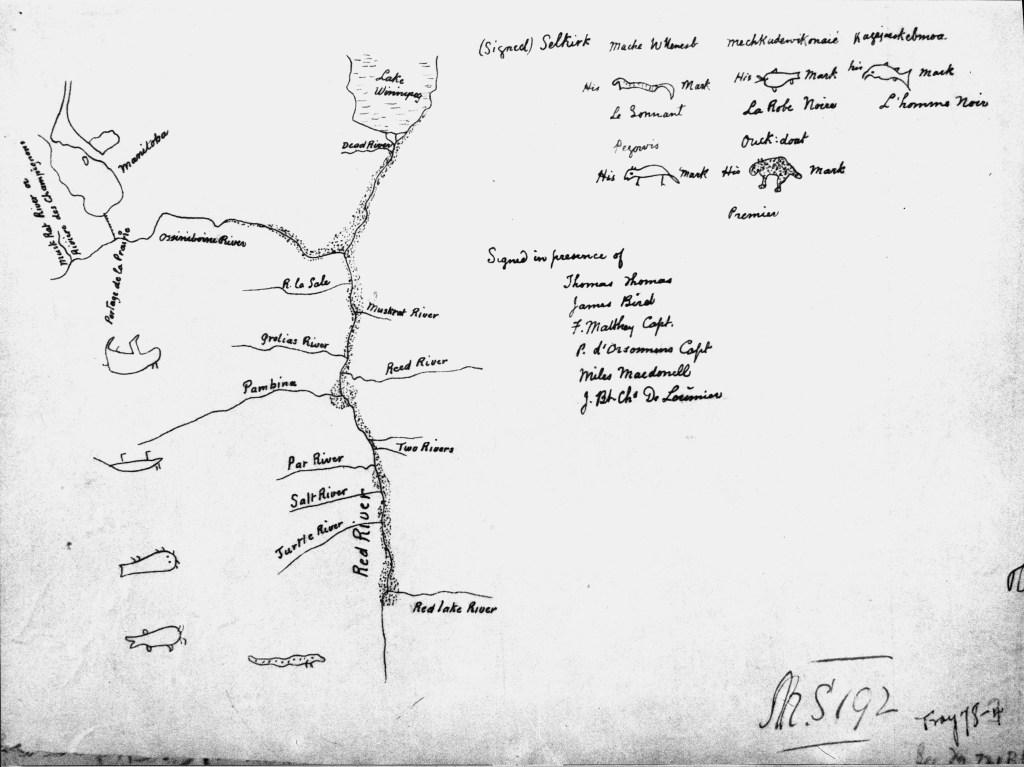 (Signed) Selkirk
Mache Wheseab
Mechkadewikonaié
Kayajieskebinoa.
His Mark
His Mark
his mark
Le Sonnant
La Robe Noire
L'homme Noir
Pegowis
Ouck-doat
His Mark
His Mark
Premier
Signed in presence of
Thomas Thomas
James Bird
F. Matthey Capt.
P. d'Orsonnens Capt
Miles Macdonell
J. Bt Chs De Lorimier
Lake
Winnipeg
Dead River
Manitoba
Musk Rat River or
Rivière des Champignons
Ossiniboine River
Portage de la Prairie
R. la Sale
Muskrat River
Grolias River
Reed River
Pambina
Two Rivers
Par River
Salt River
Turtle River
Red River
Red Lake River
M.S 192
Tray 78-4